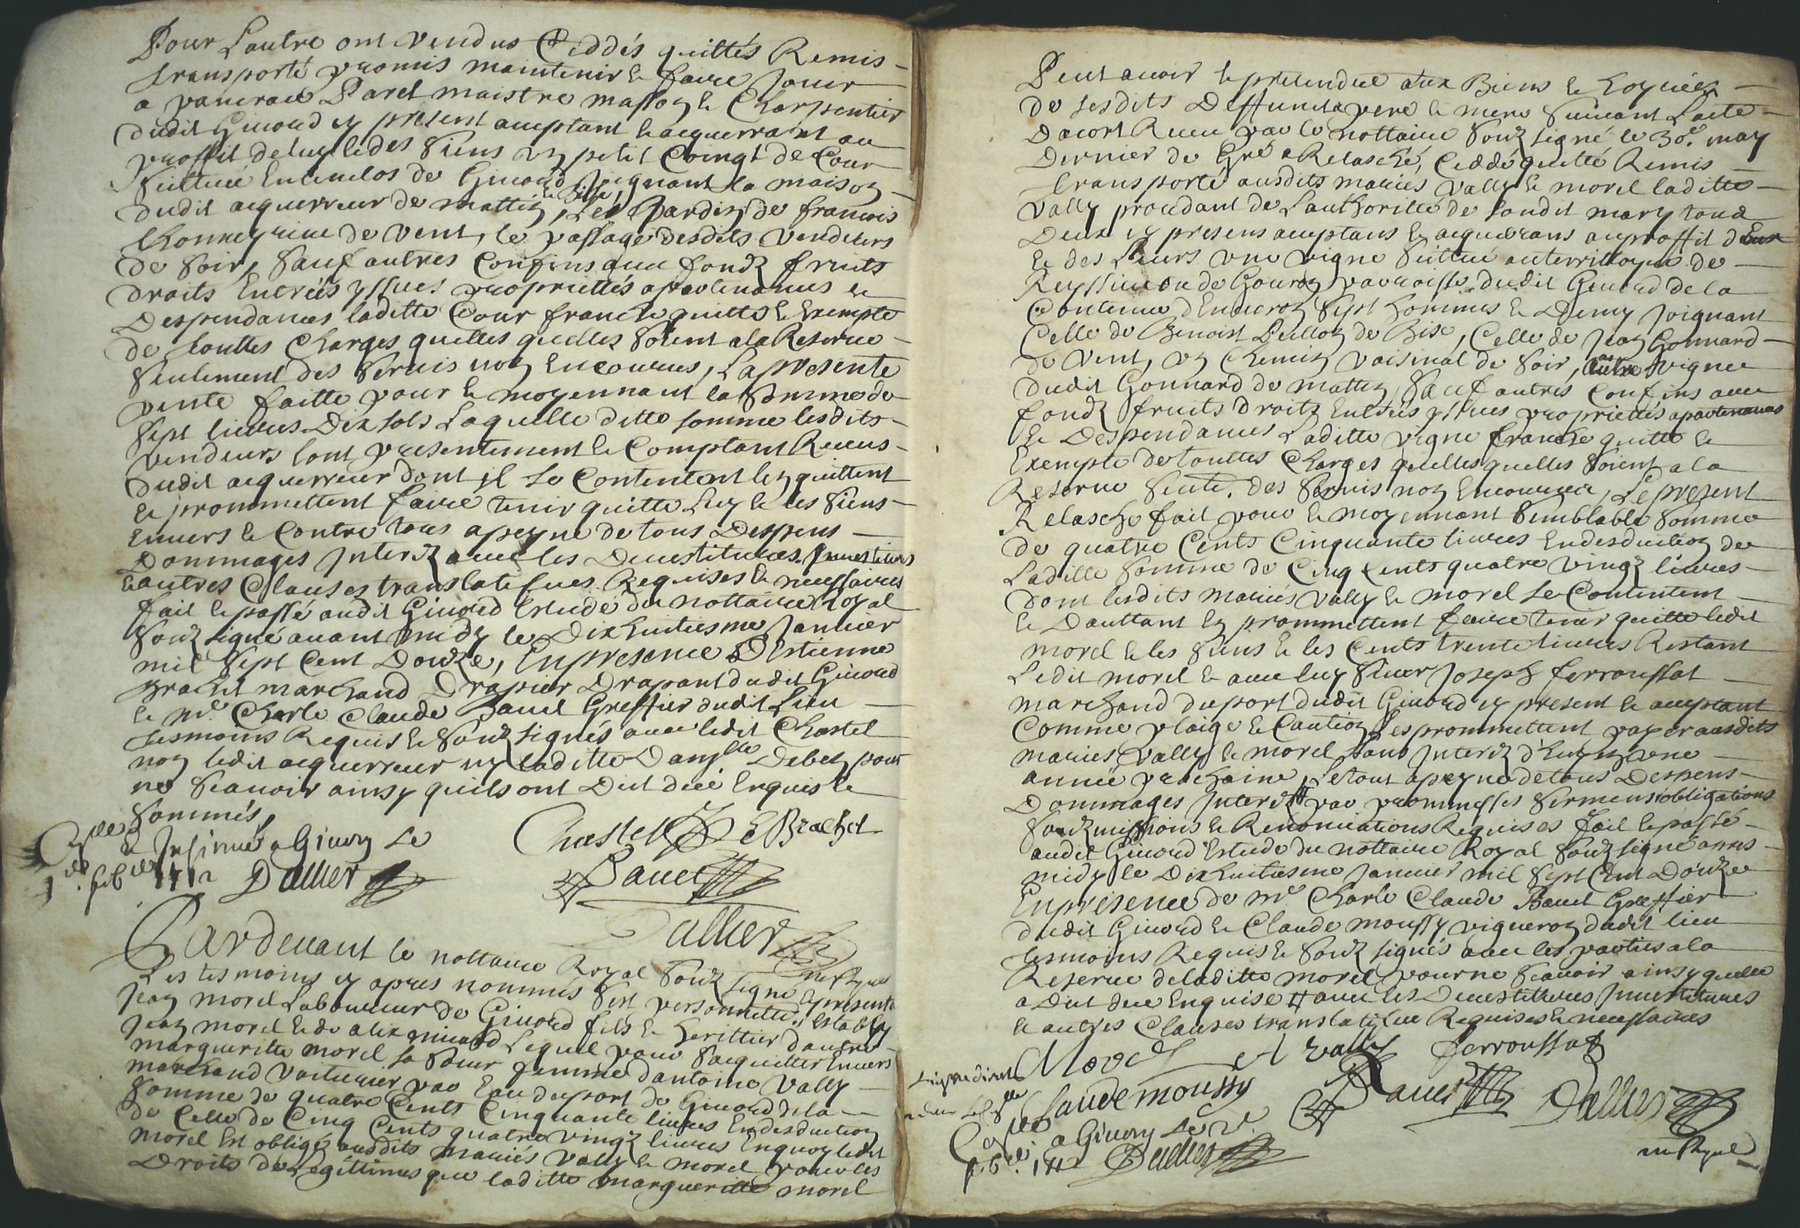 Pour Lautre ont vendus Ceddés quittés Remis
transporté promis maintenir & faire Jouir
a pancrace Paret maistre masson & Charpentier
dudit Givord cy present acceptant & acquerrant au
proffit de luy & des siens un petit Coingt de Cour
scittué Enclos de Givord Joignant la maison
dudit acquerreur de mattin & bise, Les Jardin de francois
de vent, le passage desdits vendeurs
de soir, sauf autres Confins avec fondz fruits
droits Entrées yssues proprietés apartenances &
Despendances laditte Cour franche quitte & Exempte
de touttes Charges quelles quelles soient a la Reserve
seulement des servis non Encourus, La presente
vente faitte pour & moyennant la somme de
sept livres Dix sols Laquelle ditte somme lesdits
vendeurs sont presentement & Comptant Receus
dudit acquerreur dont il se Contentent len quittent
& promettent faire tenir quitte Luy & les siens
Envers & Contre tous a peyne de tous Despens
Dommages Interetz avec les Devestitures, Investitures
& autres Clauses translatifves Requises & necessaires
fait & passé audit Givord Estude du nottaire Royal
souzsigné avant midy le Dixhuitiesme Janvier
mil sept Cent Douze, En presence D'Estienne
Brachet marchand Drapier Drapant dudit Givord
& Mr. Charle Claude Bauet Greffier dudit Lieu
tesmoins Requis & souzsignés avec ledit Chastel
non ledit acquerreur ny laditte Damlle Debet pour
ne scavoir ainsy quils ont Dit de ce Enquis &
sommés
Chastel E Brachet
Conllé & Insinué a Givors Le
1 feb 1712 Dallier
Bauet
Dallier
Pardevant le nottaire Royal souzsigné
Les tesmoins cy apres nommés fut present
Jean morel Laboureur de Givord fils & herittier d'autre
Jean morel & de alix Lequel pour sacquitter Envers
margueritte morel sa soeur femme dantoine vally
marchand voiturier par Eau du port de Givord de la
somme de quatre Cents Cinquante livres En desduction
de Celle de Cinq Cents quatre vingt livres En quoy ledit
morel Est obligé ausdits mariés vally & morel pour les
Droits de Legittimes que laditte margueritte morel
Peut avoir & pretendre aux Biens & hoyries
de sesdits Deffuncts pere & mere suivant Lacte
Dacort Receu par le nottaire souzsigné le 30e. may
Dernier de Gré a Relasché, Ceddé quitté Remis
transporté ausdits mariés vally & morel laditte
vally procedant de Lauthorité de sondit mary tous
Deux cy presens acceptans & acquerans au proffit d'Eux
& des Leurs une vigne scittuée au territtoire de
paroisse dudit Givord de la
Contenue d'Environ sept hommes & Demy Joignant
Celle de Benoist de Bise, Celle de Jean Gonnard
de vent, un Chemin voisinal de soir, autre vigne
dudit Gonnard de mattin, sauf autres Confins avec
fondz fruits droits Entrées yssues proprietés apartenances
& Despendances Laditte vigne franche quitte &
Exempte de touttes Charges quelles quelles soient a la
Reserve seulte. des servis non Encourus, Le present
Relasche fait pour & moyennant semblable somme
de quatre Cents Cinquante livres En desduction de
Laditte somme de Cinq Cents quatre vingt livres
dont lesdits mariés vally & morel se Contentent
& Dauttant En promettent faire tenir quitte ledit
morel & les siens & les Cents trente livres Restant
Ledit morel & avec luy sieur Joseph ferroussat
marchand du port dudit Givord cy present & acceptant
Comme plaige & Caution Les promettent payer ausdits
mariés vally & morel sans Interetz d'huy En une
année prochaine, Le tout a peyne de tous Despens
Dommages Interetz par promesses sermens obligations
souzmissions & Renonciations Requises fait & passé
audit Givord Estude du nottaire Royal souzsigné apres
midy le Dixhuitiesme Janvier mil sept Cent Douze
En presence de Mr. Charle Claude Bauet Greffier
dudit Givord & Claude moussy vigneron dudit lieu
tesmoins Requis & souzsignés avec les parties a la
Reserve de laditte morel pour ne scavoir ainsy quelle
a Dit de ce Enquise # avec les Devestitures Investitures
& autres Clauses translatifve Requises & necessaires
Morel A vally ferroussat
Claude moussy Bauet Dallier
Conllé a Givors Le
feb. 1712 Dallier